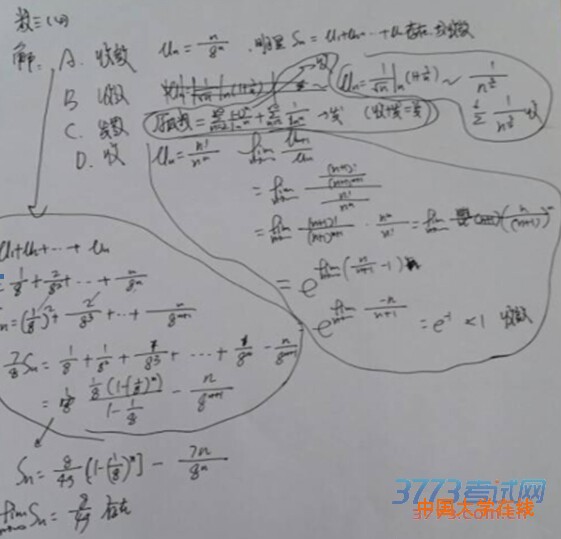 数三(4)
解: A. 收敛 Uₙ = n/8ⁿ, 明显 Sₙ = U₁+U₂+⋯+Uₙ 存在,
B 收敛 Uₙ = 1/√n ln(1+1/n) ~ 1/n^(3/2)
C. 发散 原级数 = + → 发 (收+发=发)
Σ 1/n^(3/2) 收
D. 收 Uₙ = n!/nⁿ lim Uₙ₊₁/Uₙ
= lim ((n+1)!/(n+1)ⁿ⁺¹)/(n!/nⁿ)
= lim (n+1)!/(n+1)ⁿ⁺¹ · nⁿ/n! = lim (n/(n+1))ⁿ
= e^(lim (n/(n+1) -1)n)
= e^(lim -n/(n+1)) = e⁻¹ < 1 收敛
U₁+U₂+⋯+Uₙ
= 1/8 + 2/8² + ⋯ + n/8ⁿ
= (1/8)² + 2/8³ + ⋯ + n/8ⁿ⁺¹
7/8 Sₙ = 1/8 + 1/8² + 1/8³ + ⋯ + 1/8ⁿ - n/8ⁿ⁺¹
= 1/8(1-(1/8)ⁿ)/(1-1/8) - n/8ⁿ⁺¹
Sₙ = 8/49 [1-(1/8)ⁿ] - 7n/8ⁿ
lim Sₙ = 8/49 存在
3773考试网
中国大学在线
3773.com.cn